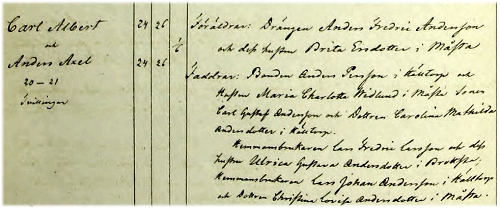 Carl Albert 24 26 Föräldrar: Drängen Anders Fredric Andersson
och 1/2 och dess hustru Brita Ersdotter i Måsta
Anders Axel 24 26 Faddrar: Bonden Anders Persson i Källtorp och
20–21 Hustru Maria Charlotte Widlund i Måsta Sonen
Tvillingar Carl Gustaf Andersson och Dottren Carolina Mathilda
Andersdotter i Källtorp.
Hemmansbrukaren Lars Fredric Larsson och dess
hustru Ulrica Gustava Andersdotter i
Hemmansbrukaren Lars Johan Andersson i Källtorp
och Dottren Christina Lovisa Andersdotter i Måsta.